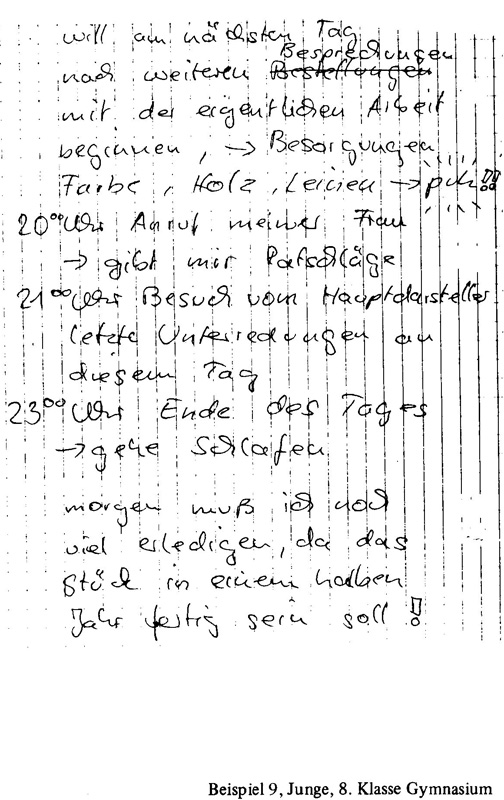 will am nächsten Tag
Besprechungen
nach weiteren Bestellungen
mit der eigentlichen Arbeit
beginnen, → Besorgungen
Farbe, Holz, Leinen → puh!!
20⁰⁰ Uhr Anruf meiner Frau
→ gibt mir Ratschläge
21⁰⁰ Uhr Besuch vom Hauptdarsteller
letzte Unterredungen an
diesem Tag
23⁰⁰ Uhr Ende des Tages
→ gehe schlafen
morgen muß ich noch
viel erledigen, da das
Stück in einem halben
Jahr fertig sein soll!
Beispiel 9, Junge, 8. Klasse Gymnasium